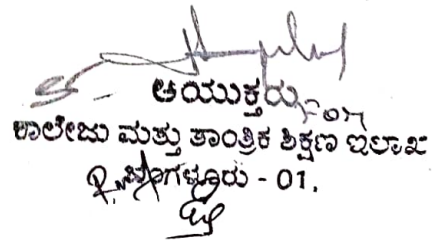 ಆಯುಕ್ತರು
ಕಾಲೇಜು ಮತ್ತು ತಾಂತ್ರಿಕ ಶಿಕ್ಷಣ ಇಲಾಖೆ
ಬೆಂಗಳೂರು - 01.